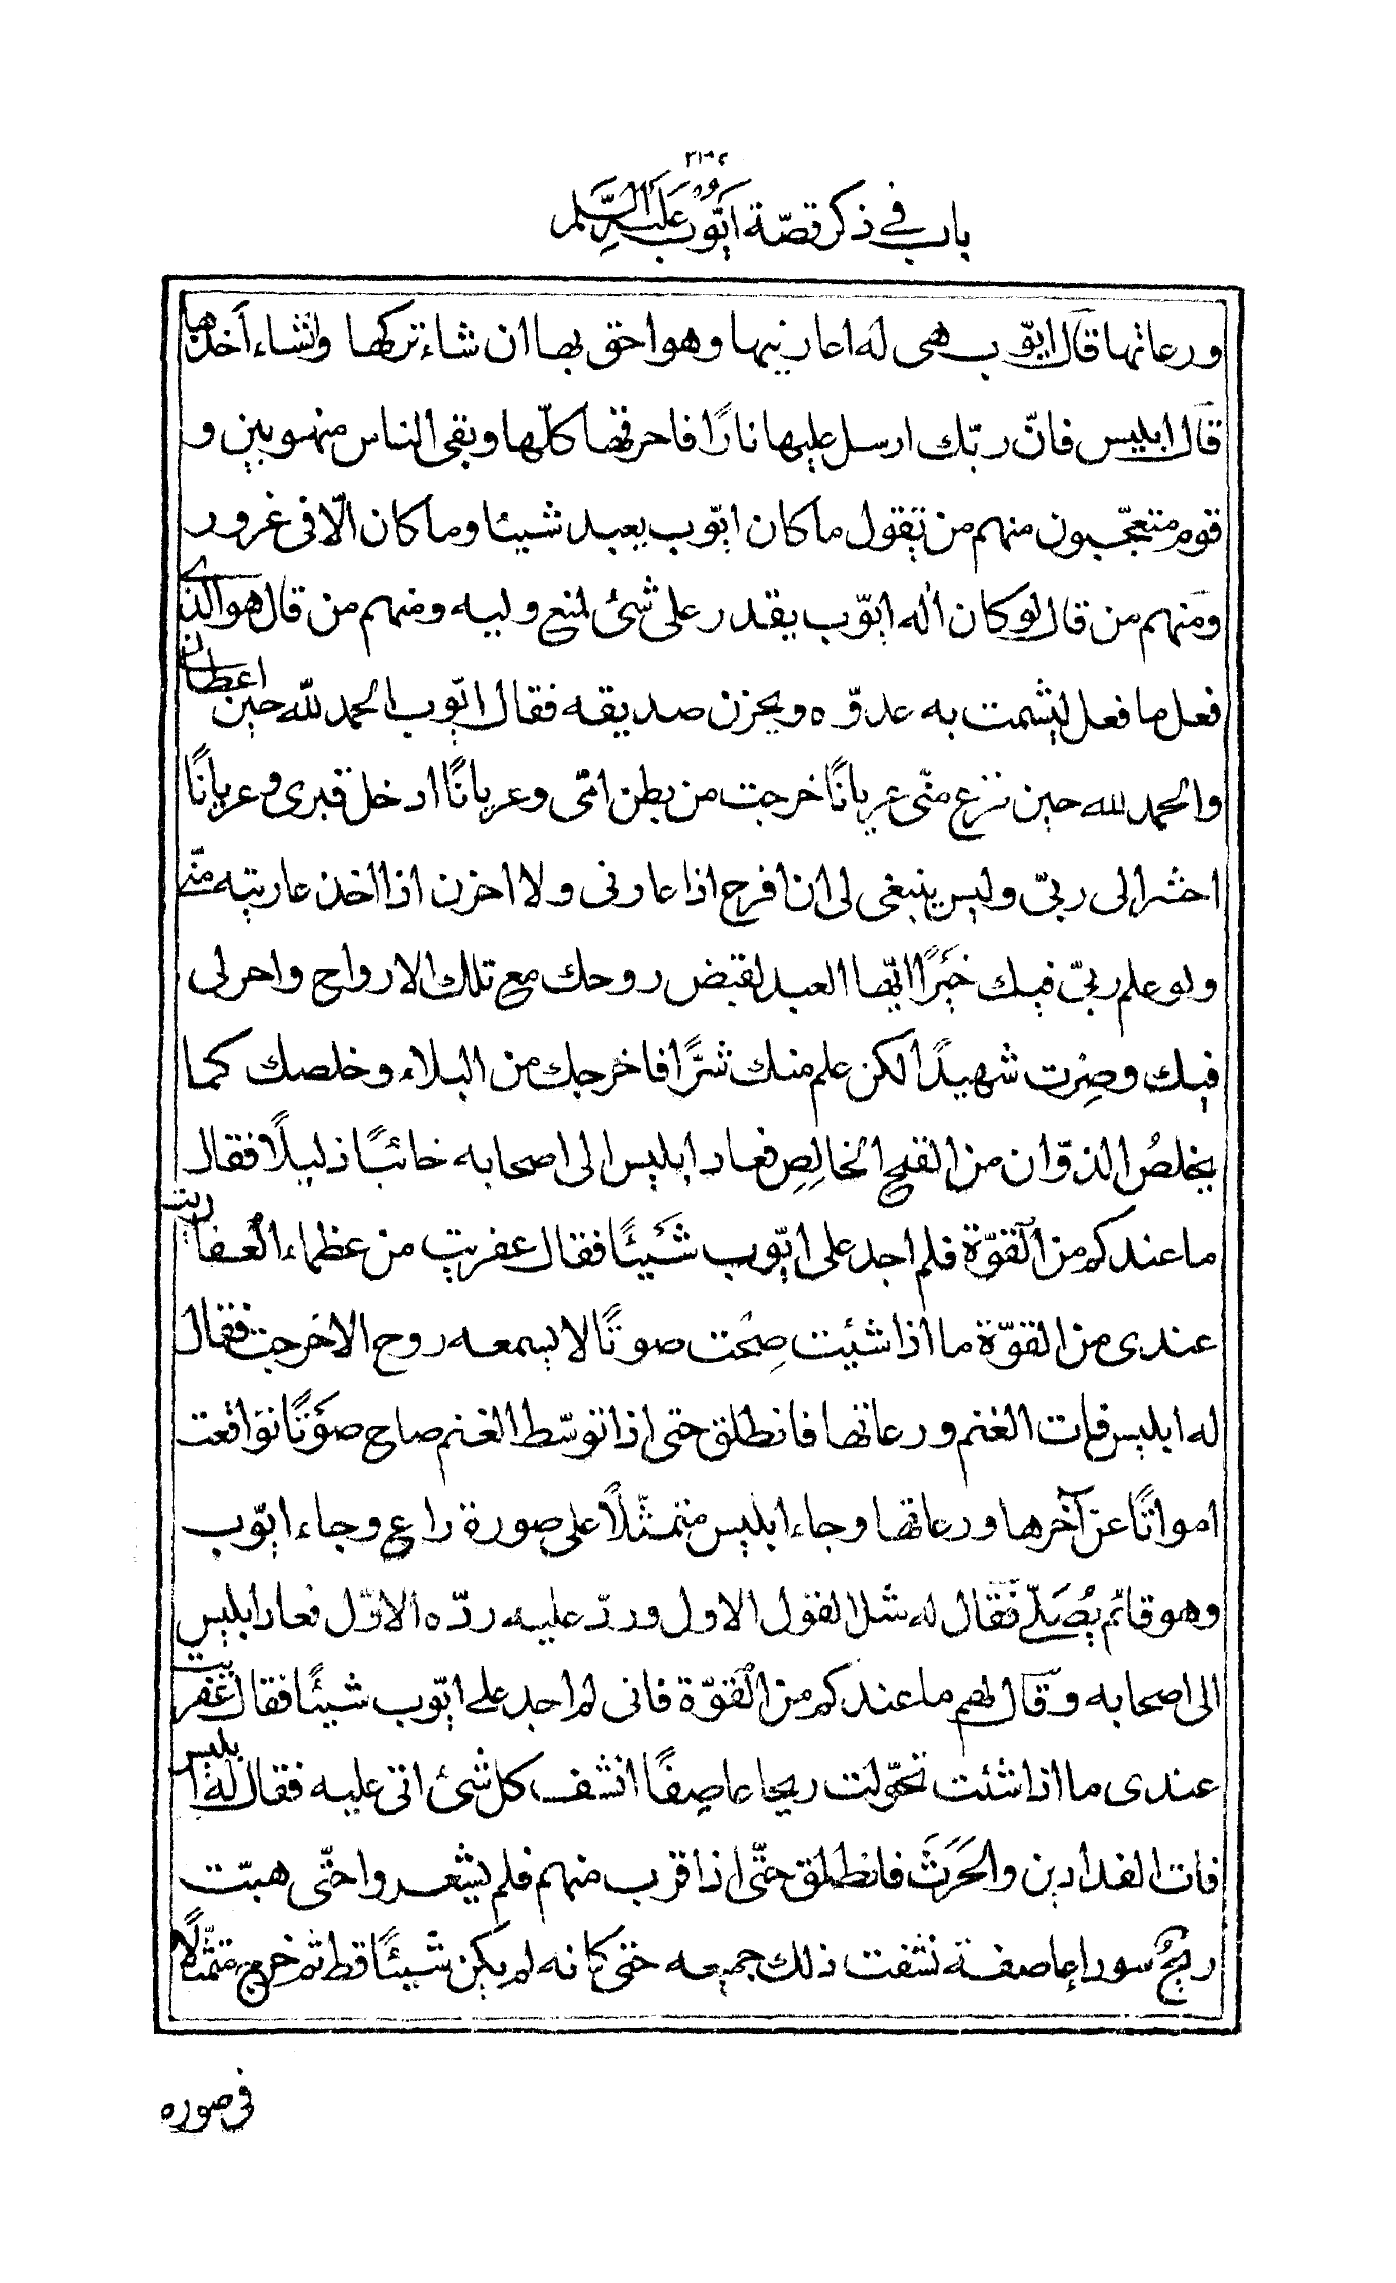 باب في ذكر قصّة ايّوب عليه السّلم
ورعاتها قال ايّوب هى له اعارنيها وهو احق بها ان شاء تركها وانشاء أخذها
قال ابليس فانّ ربّك ارسل عليها نارًا فاحرقتها كلّها وبقى الناس منهوبين و
قوم متعجّبون منهم من يقول ما كان ايّوب يعبد شيئا وما كان الّا فى غرور
ومنهم من قال لو كان اله ايّوب يقدر على شئ لمنع وليه ومنهم من قال هو الذى
فعل ما فعل ليشمت به عدوّه ويحزن صديقه فقال ايّوب الحمد للّه حين اعطانى
والحمد لله حين نزع منّى عريانًا خرجت من بطن امّى وعريانًا ادخل قبرى وعريانًا
احشر الى ربّى وليس ينبغى لى ان افرح اذا عارنى ولا احزن اذا اخذ عاريته منّى
ولو علم ربّى فيك خيرًا ايّها العبد لقبض روحك مع تلك الارواح واجرلى
فيك وصرت شهيدًا لكن علم منك شرًّا فاخرجك من البلاء وخلصك كما
يخلصُ الذوّان من القمح الخالِصِ فعاد ابليس الى اصحابه خائبًا ذليلًا فقال
ما عندكم من القوّة فلم اجد على ايّوب شيئًا فقال عفريت من عظماء العفاريت
عندى من القوّة ما اذا شئت صِحْت صوتًا لا يسمعه روح الا خرجت فقال
له ابليس فات الغنم ورعاتها فانطلق حتى اذا توسّط الغنم صاح صوتًا تواقعت
امواتًا عن آخرها ورعاتها وجاء ابليس متمثّلًا على صورة راع وجاء ايّوب
وهو قائم يصلّى فقال له مثل القول الاول وردّ عليه ردّه الاوّل فعاد ابليس
الى اصحابه وقال لهم ما عندكم من القوّة فانى لم اجد على ايّوب شيئًا فقال عفريت
عندى ما اذا شئت تحوّلت ريحا عاصِفًا انشف كل شئ اتى عليه فقال له ابليس
فات الفدادين والحَرَثَ فانطلق حتّى اذا قرب منهم فلم يشعروا حتّى هبّت
ريح سوداء عاصفة نشفت ذلك جميعه حتى كانه لم يكن شيئًا قط ثم خرج متمثّلًا
فى صوره